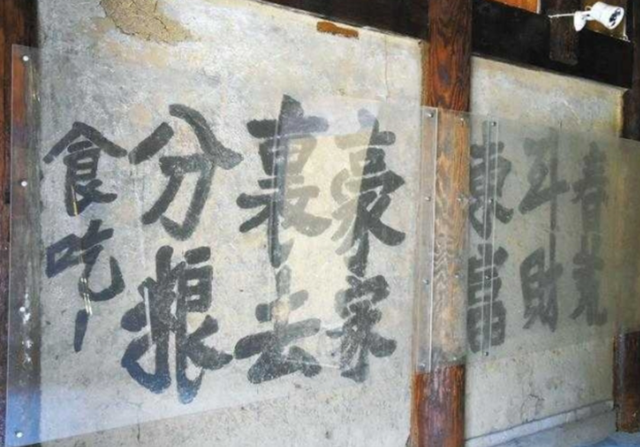 春荒
斗財
東富
豪家
裏去
分粮
食吃！